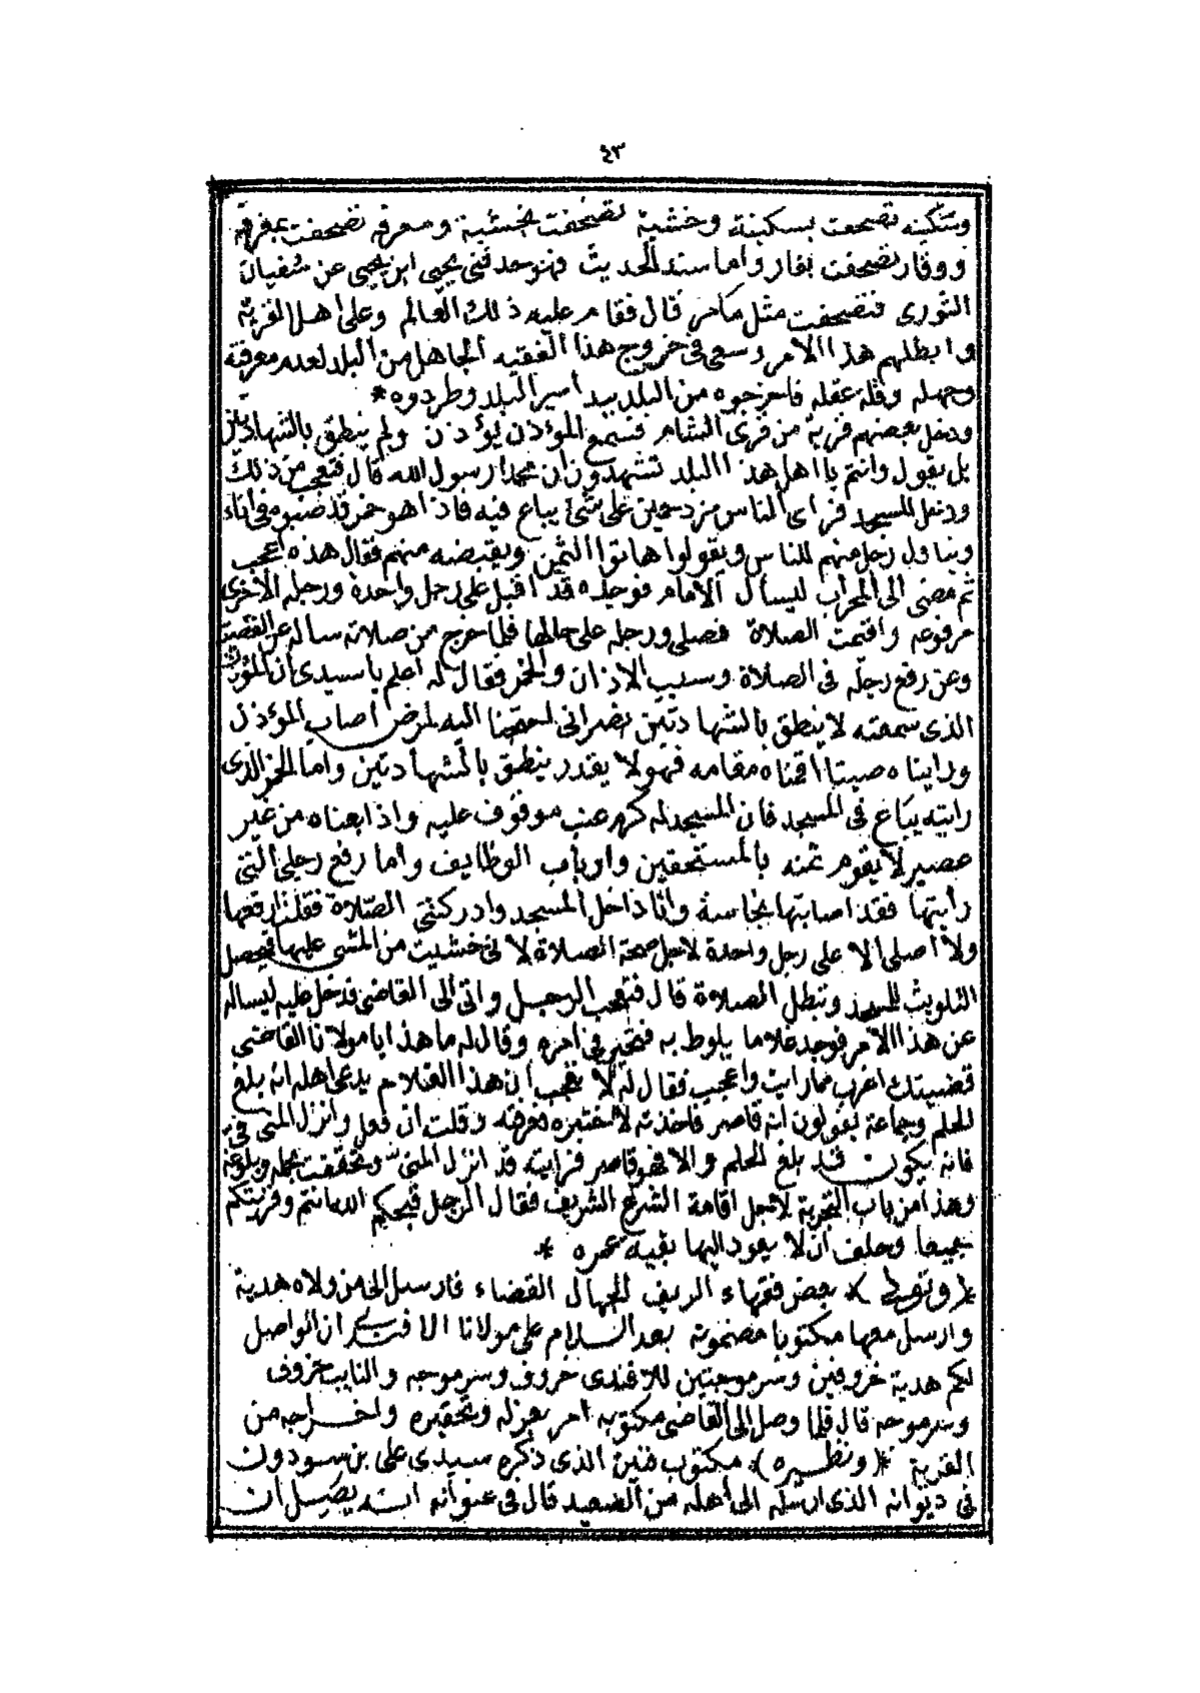 ٤٣
وسكينه تصحفت بسكينة وخشية تصحفت بخشبة ومعرفه تصحفت بمغرفه
ووقار تصحفت بفار واما سند الحديث فهو حدثني يحيى ابن يحيى عن سفيان
الثورى فتصحفت مثل مامر قال فقام عليه ذلك العالم وعلى اهل القرية
وابطلهم هذا الامر وسعى فى خروج هذا الفقيه الجاهل من البلد لعدم معرفته
وجهله وقلة عقله فاخرجوه من البلد بيد أمير البلد وطردوه *
ودخل بعضهم قرية من قرى الشام فسمع المؤذن يؤذن ولم ينطق بالشهادتين
بل يقول وانتم يا اهل هذا البلد تشهدون ان محمدا رسول الله قال فتعجب من ذلك
ودخل المسجد فراى الناس مزدحمين على شئ يباع فيه فاذا هو خمر قد صنوه فى اناء
ويناول رجل منهم للناس ويقولوا هاتوا الثمن ويقبضه منهم فقال هذه اعجب
ثم مضى الى المحراب ليسأل الامام فوجده قد اقبل على رجل واحدة ورجله الاخرى
مرفوعه واقيمت الصلاة فصلى ورجله على حالها فلما خرج من صلاته ساله عن القصة
وعن رفع رجله فى الصلاة وسبب الاذان والخمر فقال له اعلم يا سيدى ان المؤذن
الذى سمعته لا ينطق بالشهادتين نصرانى احتجنا اليه لمرض اصاب المؤذن
ورايناه صيتا اقمناه مقامه فهو لا يقدر ينطق بالشهادتين واما الخمر الذى
رايته يباع فى المسجد فان المسجد له كرم عنب موقوف عليه واذا بعناه من غير
عصير لا يقوم ثمنه بالمستحقين وارباب الوظايف واما رفع رجلى التى
رأيتها فقد اصابتها نجاسة وانا داخل المسجد وادركتنى الصلاة فقلت ارفعها
ولا أصلى الا على رجل واحدة لاجل صحة الصلاة لانى خشيت من المشى عليها فيحصل
التلويث للمسجد وتبطل الصلاة قال فتعجب الرجل واتى الى القاضى فدخل عليه ليساله
عن هذا الامر فوجد غلاما يلوط به فتحير فى امره وقال له ما هذا يا مولانا القاضى
قضيتك اغرب مما رايت واعجب فقال له لا تعجب ان هذا الغلام يدعى اهله انه بلغ
الحلم وجماعة يقولون انه قاصر فاخذته لاختبره وقلت ان فعل وانزل المنى فى
فانه يكون قد بلغ الحلم والا فهو قاصر فرايته قد انزل المنى وتحققت حمله وبلوغه
وهذا من باب التجربة لاجل اقامة الشرع الشريف فقال الرجل قبحكم الله انتم وقريتكم
جميعا وحلف ان لا يعود اليها بقية عمره *
* (وتولى) * بعض فقهاء الريف الجهال القضاء فارسل الى من ولاه هدية
وارسل معها مكتوبا مضمونه بعد السلام على مولانا الافندى ان الواصل
لكم هدية خروفين وسرموجتين للافندى خروف وسرموجه والنايب خروف
وسرموجه قال فلما وصل الى القاضى مكتوبه امر بعزله وتحقيره واخراجه من
القرية * (ونظيره) * مكتوب فنين الذى ذكره سيدى على بن سودون
فى ديوانه الذى ارسله الى أهله من الصعيد قال فى عنوانه انشه يصل ان